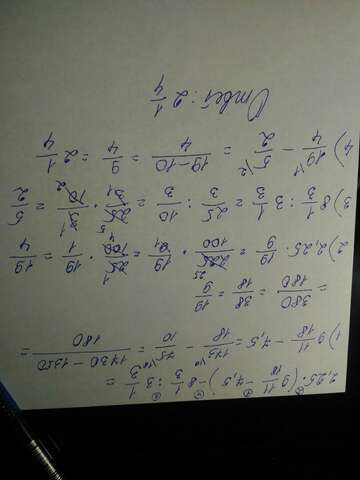 2,25·(9 11/18 − 7,5) − 8 1/3 : 3 1/3
1) 9 11/18 − 7,5 = 173/18 − 75/10 = 1730 − 1350/180 =
= 380/180 = 38/18 = 19/9
2) 2,25 · 19/9 = 225/100 · 19/9 = 25/100 · 19/1 = 19/4
3) 8 1/3 : 3 1/3 = 25/3 : 10/3 = 25/3 · 3/10 = 5/2
4) 19/4 − 5/2 = 19−10/4 = 9/4 = 2 1/4
Ответ: 2 1/4